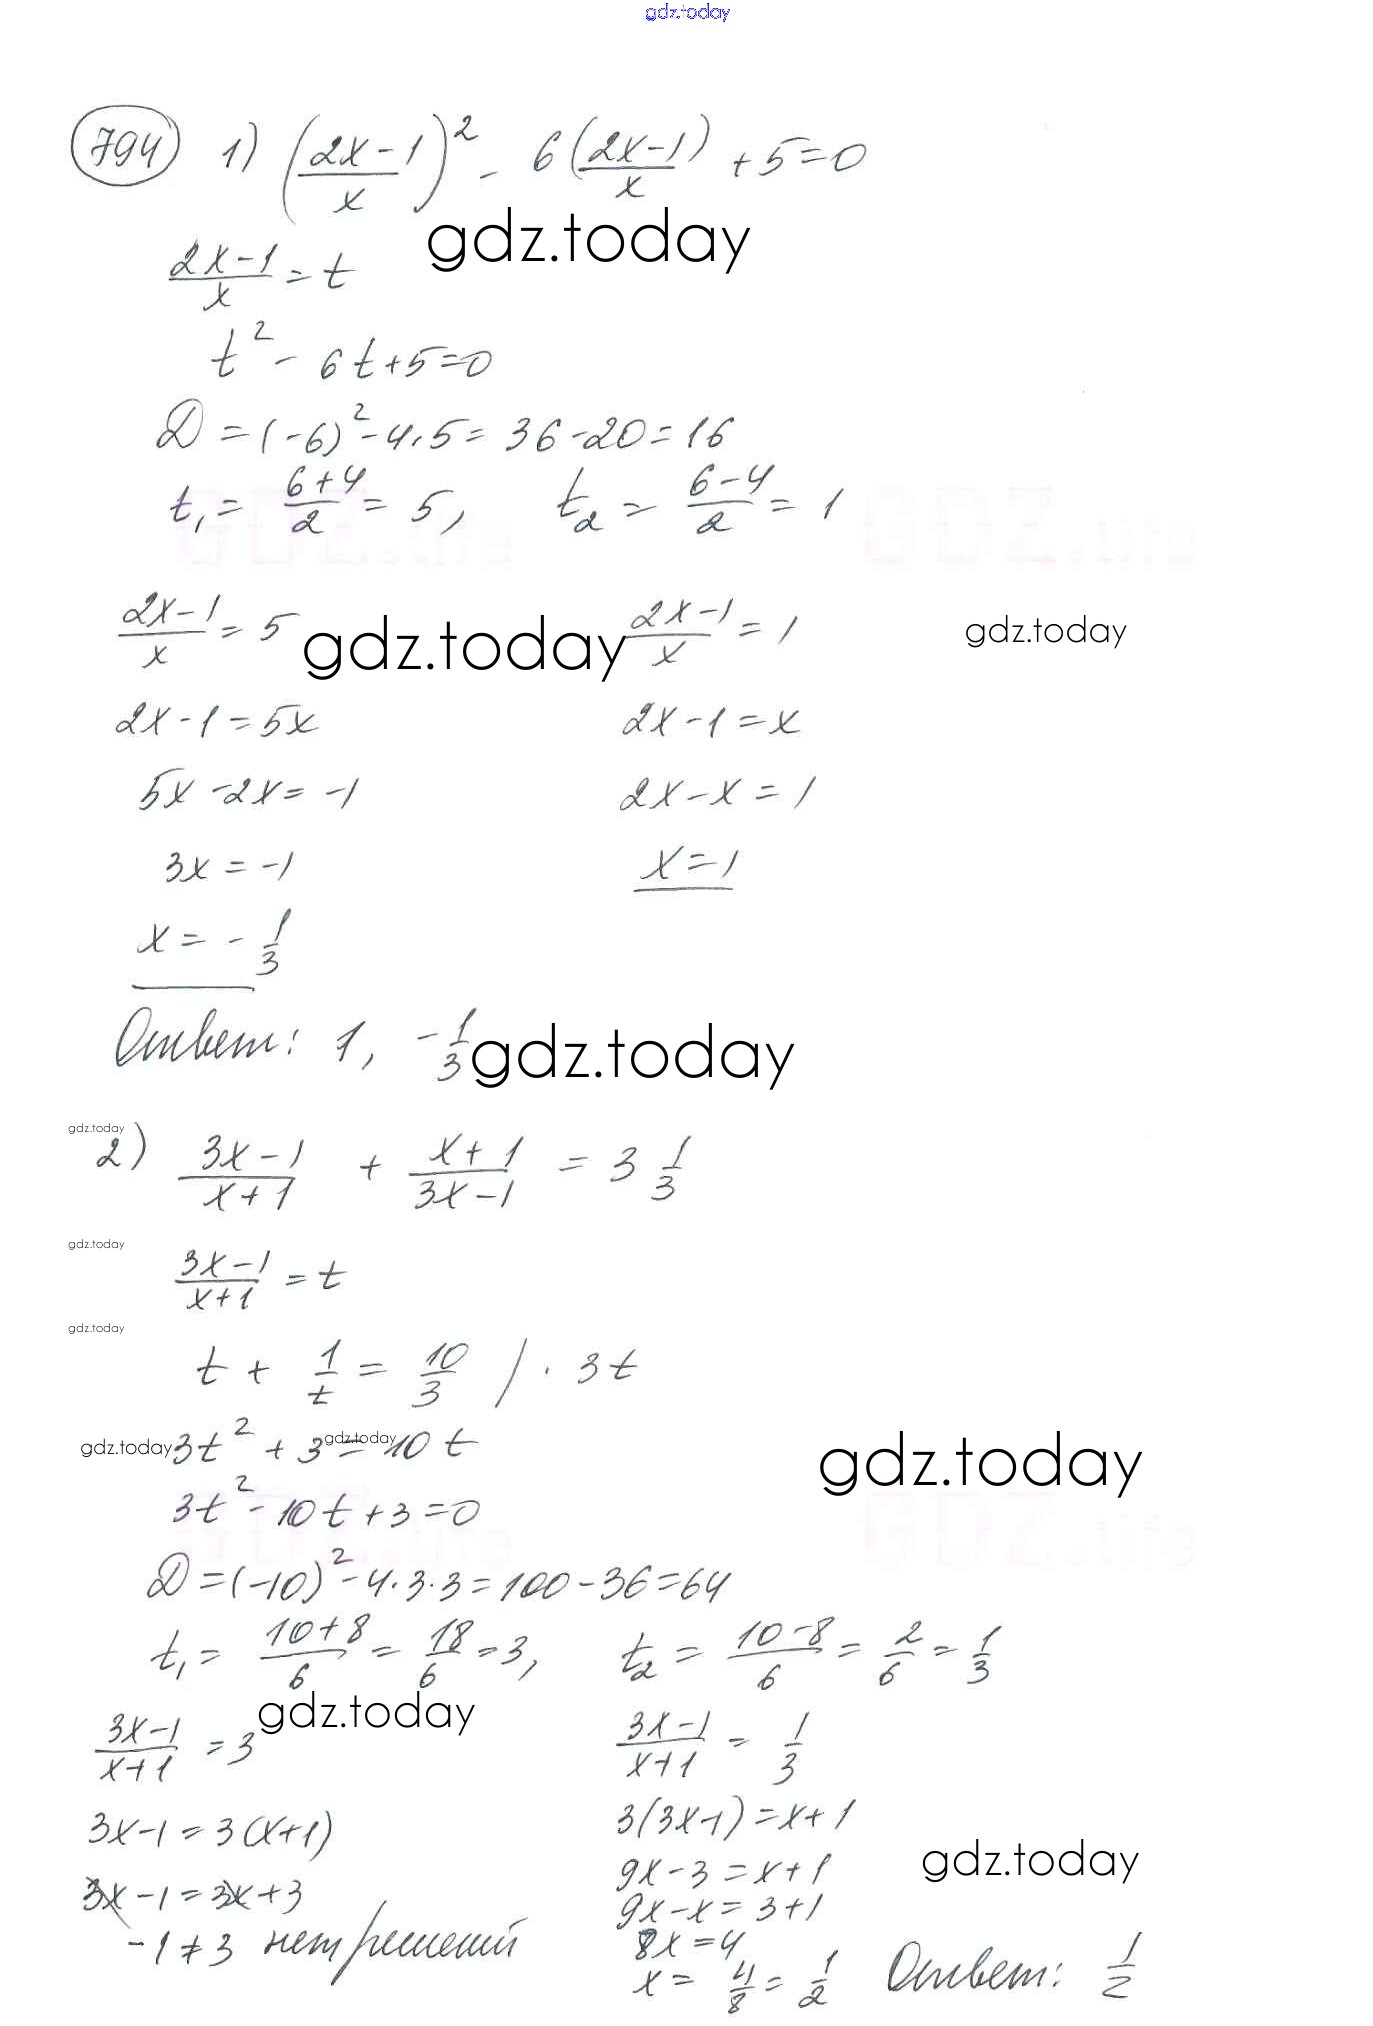 gdz.today
794 1) (2x-1/x)² - 6(2x-1)/x + 5=0
gdz.today
2x-1/x = t
t² - 6t+5=0
D=(-6)²-4·5= 36-20=16
t₁= 6+4/2= 5, t₂ = 6-4/2= 1
2x-1/x= 5 gdz.today 2x-1/x= 1 gdz.today
2x-1=5x 2x-1=x
5x-2x= -1 2x-x=1
3x = -1 x=1
x= -1/3
Ответ: 1, -1/3 gdz.today
gdz.today
2) 3x-1/x+1 + x+1/3x-1 = 3 1/3
gdz.today
3x-1/x+1 = t
gdz.today
t + 1/t = 10/3 / · 3t
gdz.today 3t² + 3 = 10t gdz.today gdz.today
3t²-10t+3=0
D=(-10)²-4·3·3=100-36=64
t₁= 10+8/6= 18/6=3, t₂= 10-8/6= 2/6= 1/3
gdz.today
3x-1/x+1 =3 3x-1/x+1 = 1/3
3x-1=3(x+1) 3(3x-1)=x+1
gdz.today
3x-1=3x+3 9x-3=x+1
9x-x=3+1
-1≠3 нет решений 8x=4
x= 4/8= 1/2 Ответ: 1/2